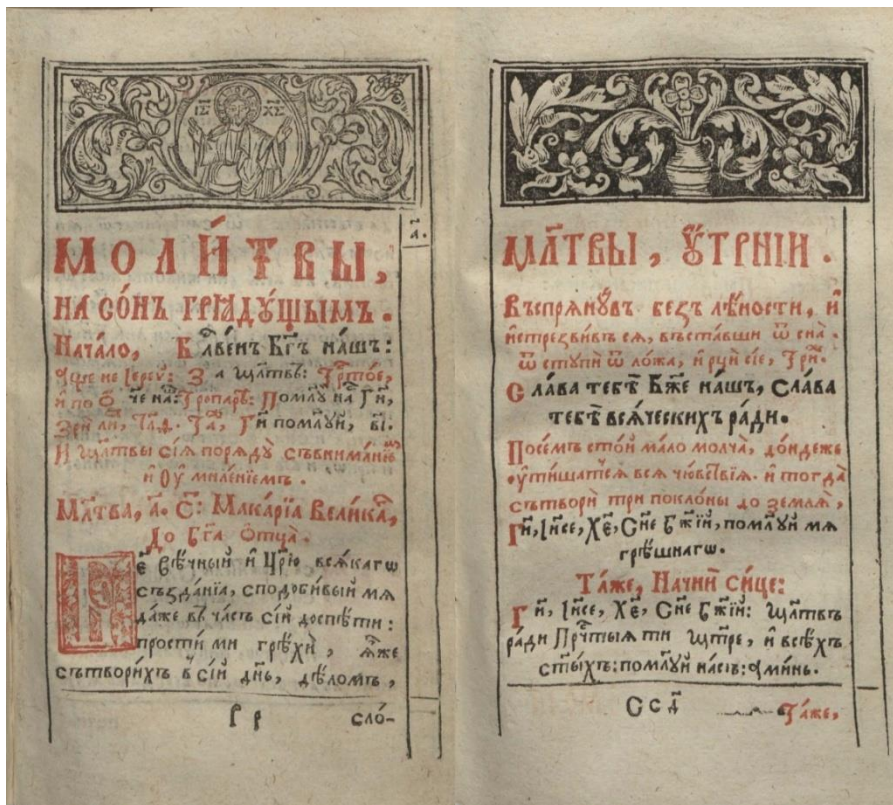 ІС ХС
МОЛИ́ТВЫ,
НА СО́НЪ ГРѦДꙊ́ЩЫМЪ.
Нача́ло, Бл҃ве́нъ Бг҃ъ на́шъ:
а҆́ще не Іере́у: За мл҃твъ: Трⷭ҇то́е,
и҆ по Ѻ҆́ч҃е на: Тропарѣ: Поми́лꙋ на Гⷭ҇и,
Гⷭ҇и поми́лꙋй, в҃і.
И҆ мл҃твы сїѧ̀ порѧ́дꙋ съ внима́нїе
и҆ Оу҆миле́нїемъ.
Мл҃тва, а҃. С: Мака́рїа Вели́каⷢ,
До Бг҃а Ѻтца̀.
Бж҃е Вѣ́чный и҆ Цр҃ю̀ всѧ́кагѡ
създа́нїа, сподо́бивый мѧ̀
да́же въ ча́съ сі́й доспѣ́ти:
прости́ ми грѣхѝ, ꙗ҆́же
сътвори́хъ в сі́й дн҃ь, дѣ́ломъ,
Р р сло́-
а҃.
МЛ҃ТВЫ, ОУ҆́ТРНІИ.
Въспрѧнꙋ́въ безъ лѣ́ности, и҆
и҆стрезви́въ сѧ, въста́вши ѿ сна̀.
ѿстꙋпѝ ѿ ло́жа, и҆ рцы̀ сїѐ, Три́.
Сла́ва тебѣ̀ Бж҃е на́шъ, Сла́ва
тебѣ̀ всѧ́ческихъ ра́ди.
Посе́мъ сто́й ма́ло молча̀, до́ндеже
оу҆тиша́тсѧ всѧ̀ чю́вствїѧ. и҆ тогда̀
сътворѝ трѝ покло́ны до землѧ̀,
Гⷭ҇и, І҆и҃се, Хⷭ҇е, Сн҃е Бж҃їй, поми́лꙋй мѧ̀
грѣ́шнагѡ.
Та́же, Начнѝ си́це:
Гⷭ҇и, І҆и҃се, Хⷭ҇е, Сн҃е Бж҃їй: мл҃твъ
ра́ди Прⷱ҇тыѧ ти Мт҃ре, и҆ всѣ́хъ
ст҃ы́хъ: поми́лꙋй на́съ: а҆ми́нь.
С с д҃ Та́же,